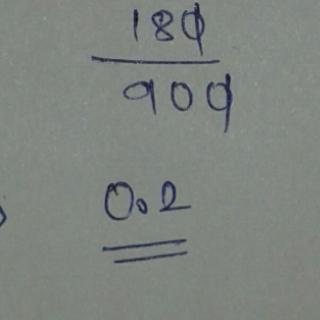 180
900
0.2